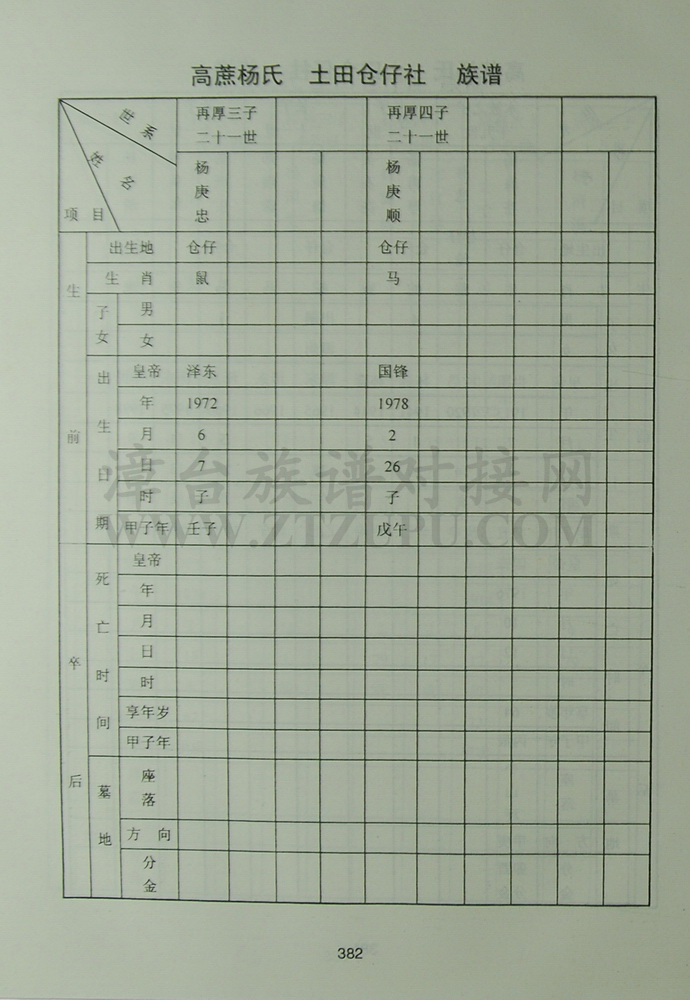 高蔗杨氏 土田仓仔社 族谱
世系 再厚三子 再厚四子
二十一世 二十一世
姓名 杨庚忠 杨庚顺
项目
生前 出生地 仓仔 仓仔
生肖 鼠 马
子女 男
女
出生日期 皇帝 泽东 国锋
年 1972 1978
月 6 2
日 7 26
时 子 子
甲子年 壬子 戊午
卒后 死亡时间 皇帝
年
月
日
时
享年岁
甲子年
墓地 座落
方向
分金
漳台族谱对接网
WWW.ZTZUPU.COM
382